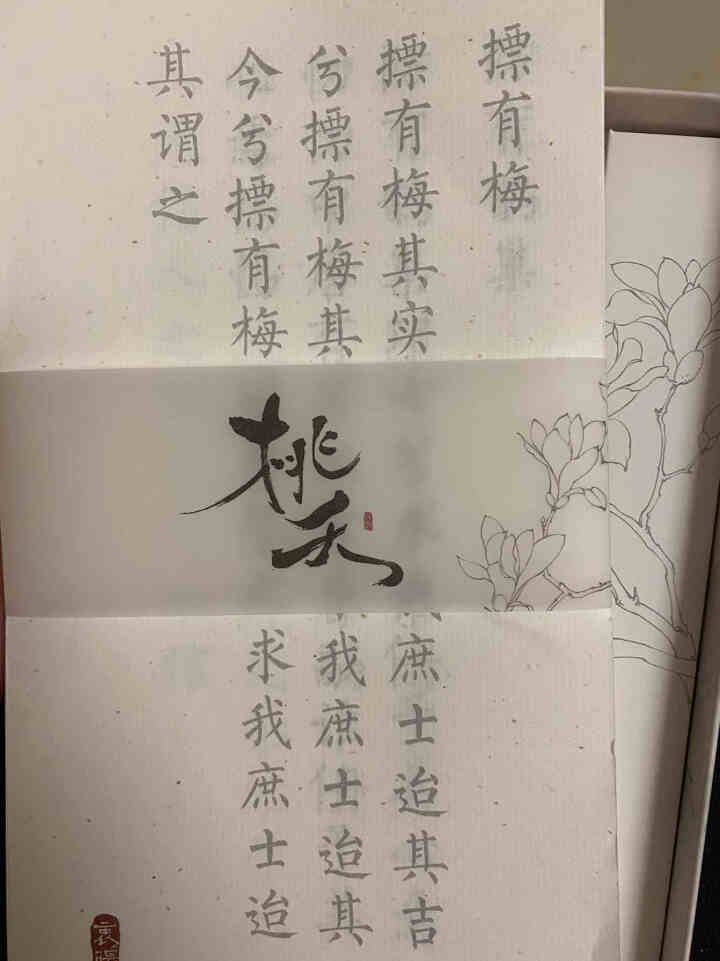 摽有梅
摽有梅其实
我庶士迨其吉
兮摽有梅其
我庶士迨其
今兮摽有梅
求我庶士迨
其谓之
桃夭